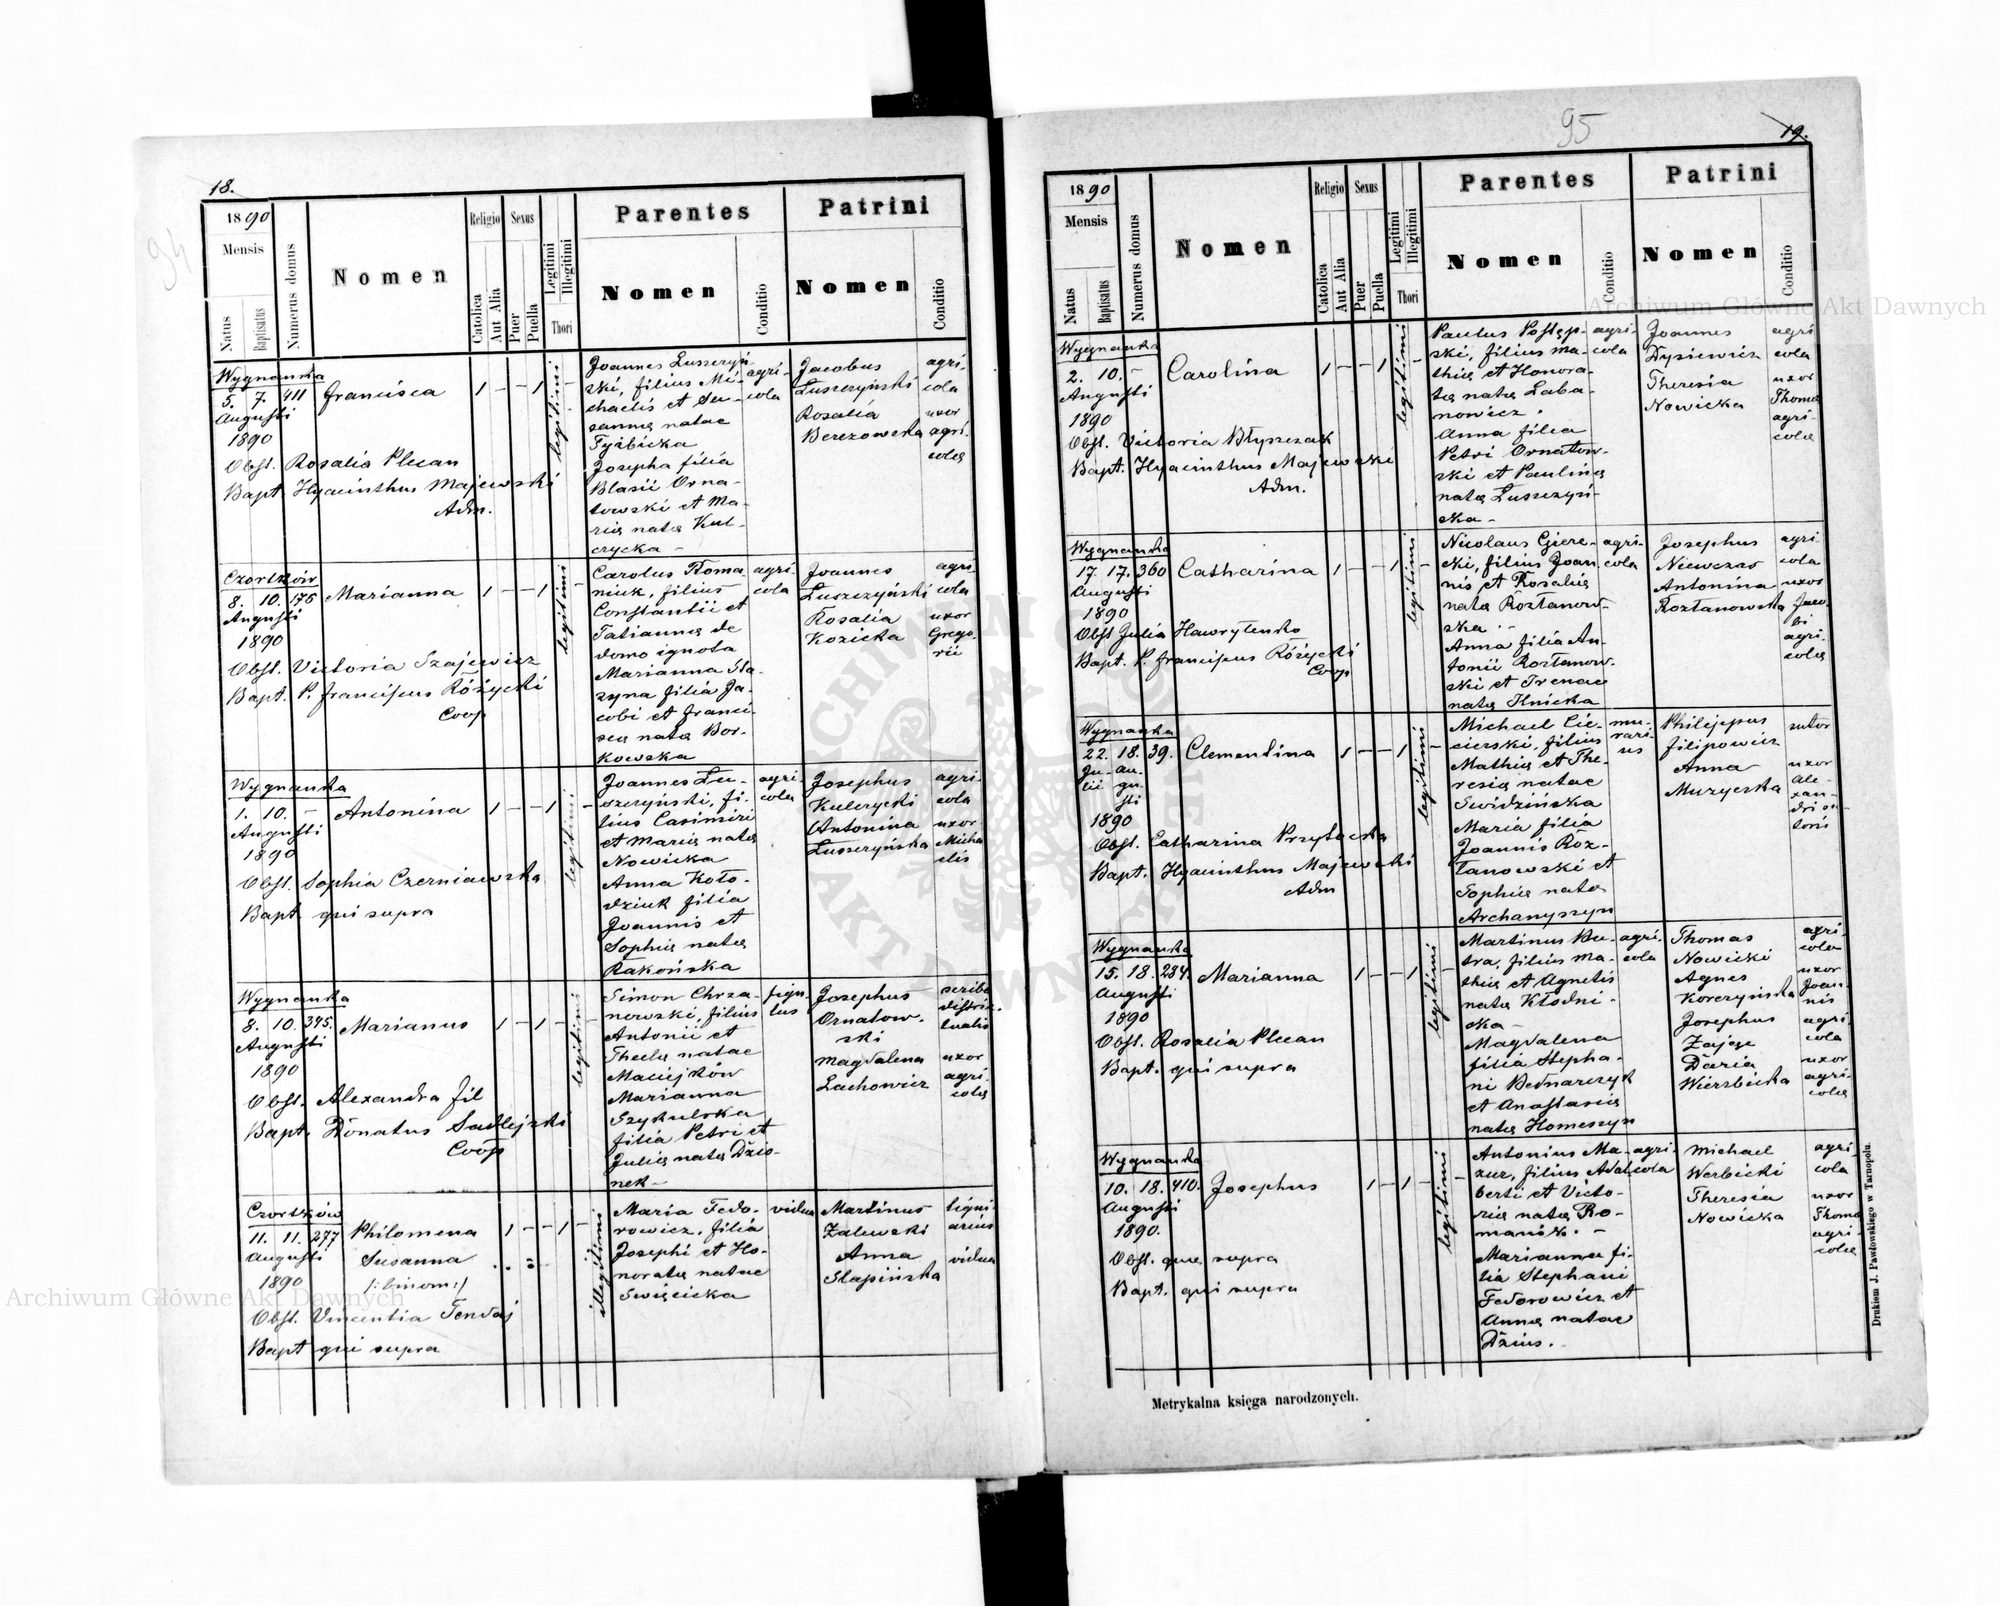 18.
94
1890
Mensis
Natus
Baptisatus
Numerus domus
Nomen
Religio
Catolica
Aut Alia
Sexus
Puer
Puella
Legitimi
Illegitimi
Thori
Parentes
Nomen
Conditio
Patrini
Nomen
Conditio
Wygnanka
5. 7. 411 Francisca 1 — — 1 legitimi —
Augusti
1890
Obst. Rosalia Plecan
Bapt. Hyacinthus Majewski
Adm.
Joannes Luszczyń-
ski, filius Mi-
chaelis et Su-
sannae natae
Tyżbicka
Josepha filia
Blasii Orna-
towski et Ma-
riae natae Kul-
czycka —
agri-
cola
Jacobus
Luszczyński
Rosalia
Berezowska
agri-
cola
uxor
agri-
colae
Czortków
8. 10. 175 Marianna 1 — — 1 legitimi —
Augusti
1890
Obst. Victoria Szajewicz
Bapt. P. Franciscus Różycki
Coop
Carolus Roma-
niuk, filius
Constantii et
Tatiannae de
domo ignota
Marianna Sta-
zyna filia Ja-
cobi et Franci-
scae natae Bor-
kowska
agri-
cola
Joannes
Luszczyński
Rosalia
Kozicka
agri-
cola
uxor
Grego-
rii
Wygnanka
1. 10. — Antonina 1 — — 1 — legitimi —
Augusti
1890
Obst. Sophia Czerniawska
Bapt. qui supra
Joannes Lu-
szczyński, fi-
lius Casimiri
et Mariae natae
Nowicka
Anna Koło-
dziuk filia
Joannis et
Sophiae natae
Rakońska
agri-
cola
Josephus
Kulczycki
Antonina
Luszczyńska
agri-
cola
uxor
Micha
elis
Wygnanka
8. 10. 395. Marianus 1 — 1 — legitimi —
Augusti
1890
Obst. Alexandra Fil
Bapt. Donatus Sadlejski
Coop
Simon Chrza-
nowski, filius
Antonii et
Theclae natae
Maciejków
Marianna
Szykulska
filia Petri et
Juliae natae Dzio-
nek —
figu-
lus
Josephus
Ornatow-
ski
Magdalena
Lachowicz
scriba
distric-
tualis
uxor
agri-
colae
Czortków
11. 11. 277 Philomena 1 — — 1 — illegitimi
Augusti Susanna
1890 /:binom:/
Obst. Vincentia Tendaj
Bapt qui supra
Maria Fedo-
rowicz, filia
Josephi et Ho-
noratae natae
Święcicka
vidua
Martinus
Zalewski
Anna
Slapińska
ligni-
arius
vidua
95
19.
1890
Mensis
Natus
Baptisatus
Numerus domus
Nomen
Religio
Catolica
Aut Alia
Sexus
Puer
Puella
Legitimi
Illegitimi
Thori
Parentes
Nomen
Conditio
Patrini
Nomen
Conditio
Wygnanka
2. 10. — Carolina 1 — — 1 legitimi —
Augusti
1890
Obst. Victoria Błyszczak
Bapt. Hyacinthus Majewski
Adm.
Paulus Postęp-
ski, filius Ma-
thiae et Honora-
tae natae Laba-
nowicz.
Anna filia
Petri Ornatow-
ski et Paulinae
natae Luszczyń-
ska —
agri-
cola
Joannes
Dysiewicz
Theresia
Nowicka
agri
cola
uxor
Thomae
agri-
colae
Wygnanka
17. 17. 360 Catharina 1 — — 1 legitimi —
Augusti
1890
Obst Julia Hawrylenko
Bapt. P. Franciscus Różycki
Coop
Nicolaus Giere-
cki, filius Joan
nis et Rosaliae
natae Rozłanow-
ska. —
Anna filia An-
tonii Rozłanow-
ski et Irenae
natae Ilnicka
agri-
cola
Josephus
Niewczas
Antonina
Rozłanowska
agri-
cola
uxor
Jaco-
bi
agri-
colae
Wygnanka
22. 18. 39. Clementina 1 — — 1 legitimi —
Ju- Au-
lii gu-
sti
1890
Obst. Catharina Przyłucka
Bapt. Hyacinthus Majewski
Adm
Michael Cie-
cierski, filius
Mathiae et The-
resiae natae
Swidzińska
Maria filia
Joannis Roz-
łanowski et
Sophiae natae
Archanyszyn
mu-
rari-
us
Philippus
Filipowicz
Anna
Muzycska
sutor
uxor
Ale-
xan-
dri su-
toris
Wygnanka
15. 18. 284. Marianna 1 — — 1 — legitimi
Augusti
1890
Obst. Rosalia Plecan
Bapt. qui supra
Martinus Bu-
tra, filius Ma-
thiae et Agnetis
natae Kłodni-
cka —
Magdalena
filia Stepha-
ni Bednarczyk
et Anastasiae
natae Homeszyn
agri-
cola
Thomas
Nowicki
Agnes
Korczyńska
Josephus
Zając
Daria
Wierzbicka
agri-
cola
uxor
Joan-
nis
agri-
cola
uxor
agri-
colae
Wygnanka
10. 18. 410. Josephus 1 — 1 — — legitimi —
Augusti
1890.
Obst. quae supra
Bapt. qui supra
Antonius Ma-
zur, filius Adal
berti et Victo-
riae natae Ro-
maniuk. —
Marianna fi-
lia Stephani
Fedorowicz et
Annae natae
Dzius. —
agri-
cola
Michael
Werbicki
Theresia
Nowicka
agri-
cola
uxor
Thomae
agri-
colae
Metrykalna księga narodzonych.
Drukiem J. Pawłowskiego w Tarnopolu.
Archiwum Główne Akt Dawnych
Archiwum Główne Akt Dawnych
ARCHIWUM GŁÓWNE AKT DAWNYCH